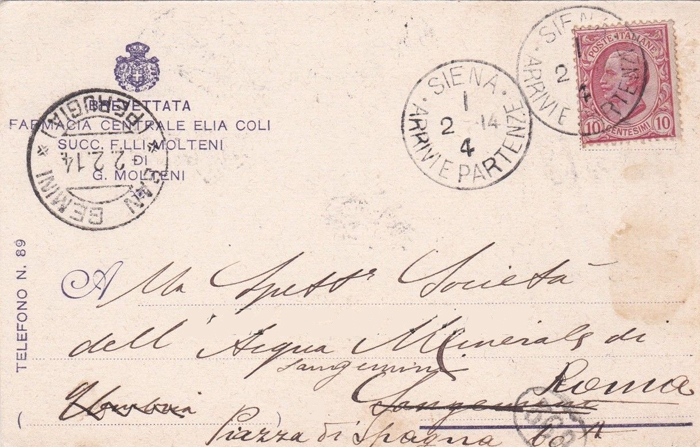 BREVETTATA
FARMACIA CENTRALE ELIA COLI
SUCC. F.LLI MOLTENI
DI
G. MOLTENI
TELEFONO N. 89
SAN GEMINI
* PERUGIA *
2.2.14
· SIENA ·
1
2 -14
4
ARRIVI E PARTENZE
· SIENA
1
2
4
ARRIVI E PARTENZE
POSTE ITALIANE
10 CENTESIMI 10
A lla Spettle Società
dell'Acqua Minerale di
Sangemini
Sangemini Roma
Piazza di Spagna